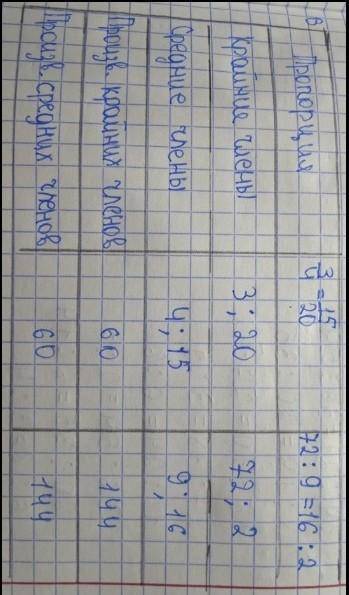 6 Пропорция 3/4 = 15/20 72 : 9 = 16 : 2
Крайние члены 3 ; 20 72 ; 2
Средние члены 4 ; 15 9 ; 16
Произв. крайних членов 60 144
Произв. средних членов 60 144